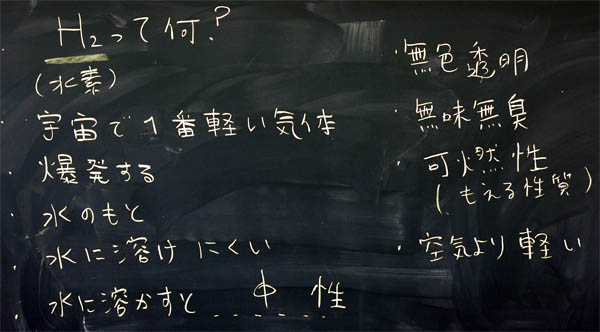 H₂って何?
(水素)
・宇宙で1番軽い気体
・爆発する
・水のもと
・水に溶けにくい
・水に溶かすと......中 性
・無色透明
・無味無臭
・可燃性
(もえる性質)
・空気より軽い